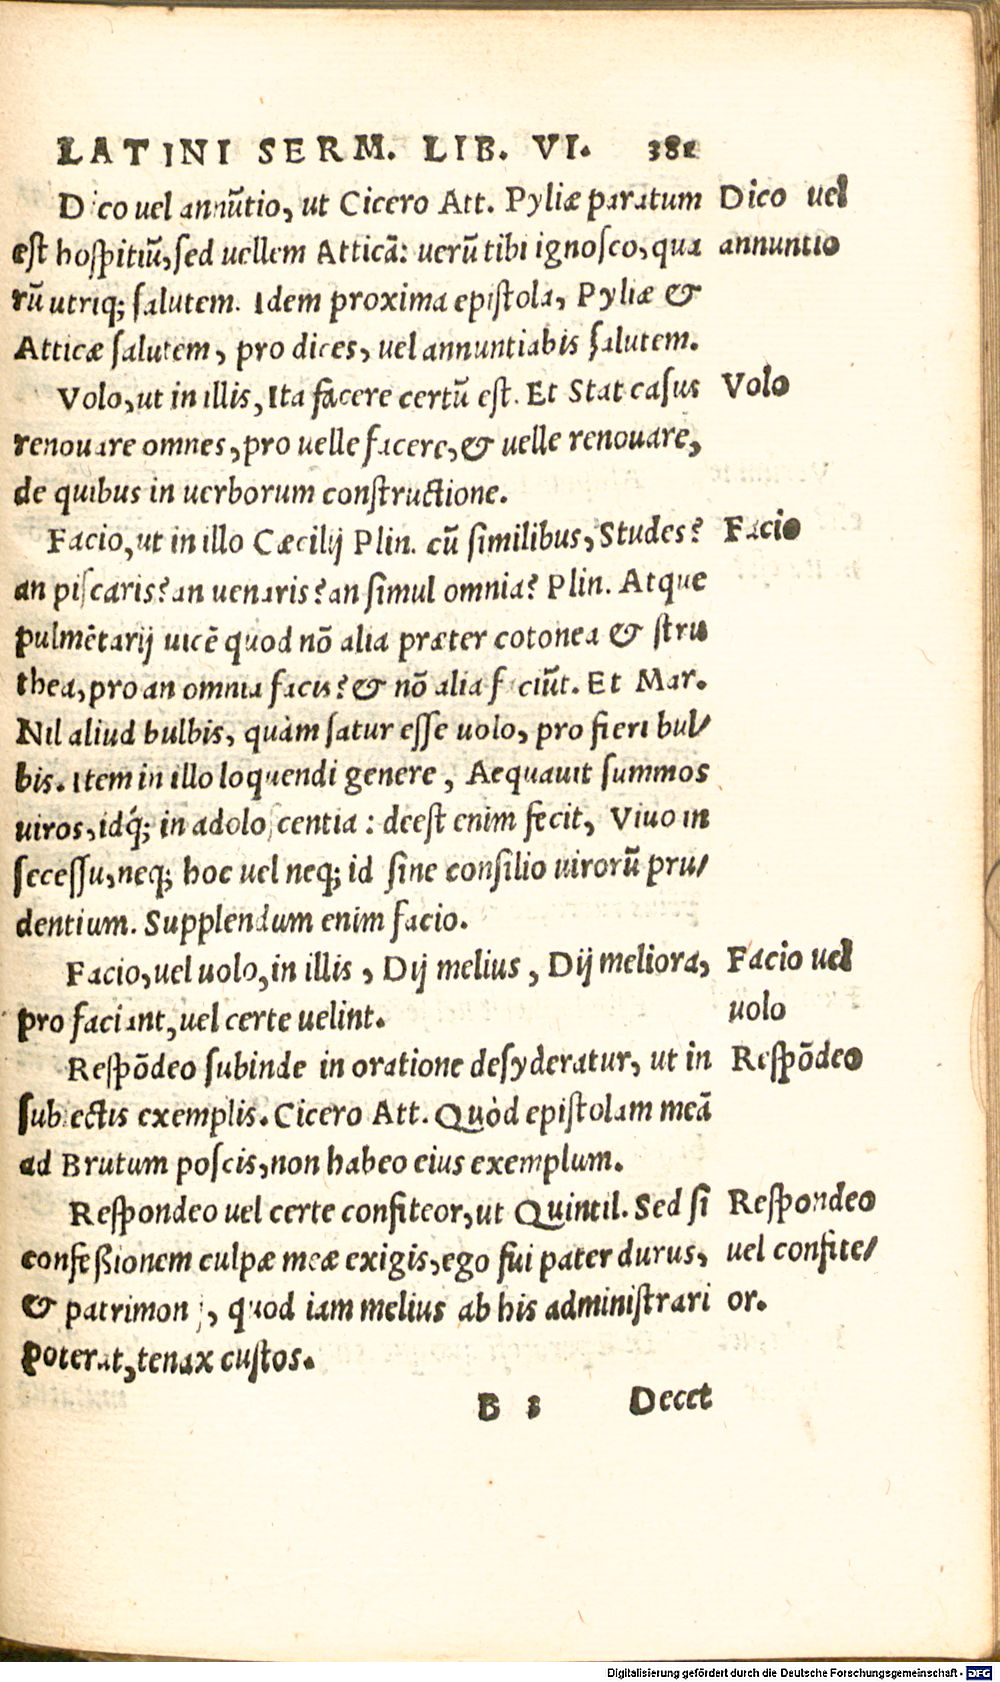 LATINI SERM. LIB. VI. 381
Dico vel annũtio, ut Cicero Att. Pyliæ paratum
est hospitiũ, sed uellem Atticã: uerũ tibi ignosco, qua
rũ utriq; salutem. Idem proxima epistola, Pyliæ &
Atticæ salutem, pro dices, vel annuntiabis salutem.
Volo, ut in illis, Ita facere certũ est. Et Stat casus
renouare omnes, pro uelle facere, & uelle renouare,
de quibus in uerborum constructione.
Facio, ut in illo Cæcilij Plin. cũ similibus, Studes?
an piscaris? an uenaris? an simul omnia? Plin. Atque
pulmẽtarij uicẽ quod nõ alia præter cotonea & stru
thea, pro an omnia facis? & nõ alia faciũt. Et Mar.
Nil aliud bulbis, quàm satur esse uolo, pro fieri bul/
bis. Item in illo loquendi genere, Aequauit summos
uiros, idq́; in adoloscentia: deest enim fecit, Viuo in
secessu, neq; hoc vel neq; id sine consilio uirorũ pru/
dentium. Supplendum enim facio.
Facio, vel uolo, in illis, Dij melius, Dij meliora,
pro faciant, vel certe uelint.
Respõdeo subinde in oratione desyderatur, ut in
subiectis exemplis. Cicero Att. Quòd epistolam meã
ad Brutum poscis, non habeo eius exemplum.
Respondeo vel certe confiteor, ut Quintil. Sed si
confeßionem culpæ meæ exigis, ego fui pater durus,
& patrimonij, quod iam melius ab his administrari
poterat, tenax custos.
B 3 Decet
Dico vel
annuntio
Volo
Facio
Facio vel
uolo
Respõdeo
Respondeo
vel confite/
or.
Digitalisierung gefördert durch die Deutsche Forschungsgemeinschaft - DFG